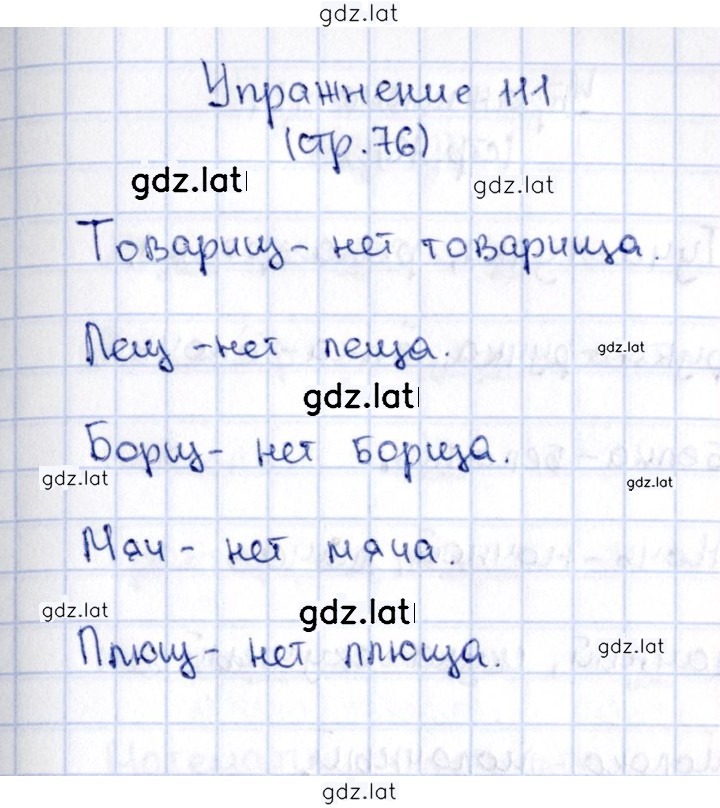 gdz.lat
Упражнение 111
(стр. 76)
gdz.lat
gdz.lat
Товарищ - нет товарища.
Лещ - нет леща.
gdz.lat
gdz.lat
Борщ - нет борща.
gdz.lat
gdz.lat
Мяч - нет мяча.
gdz.lat
gdz.lat
Плющ - нет плюща.
gdz.lat
gdz.lat